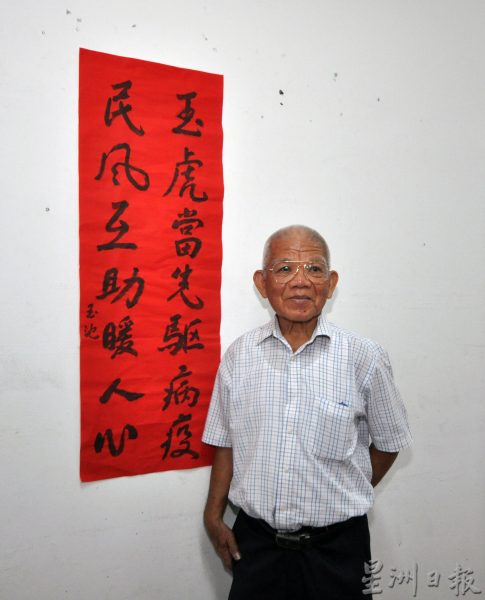 玉虎當先駆病疫
民风互助暖人心
玉沁
星洲日报